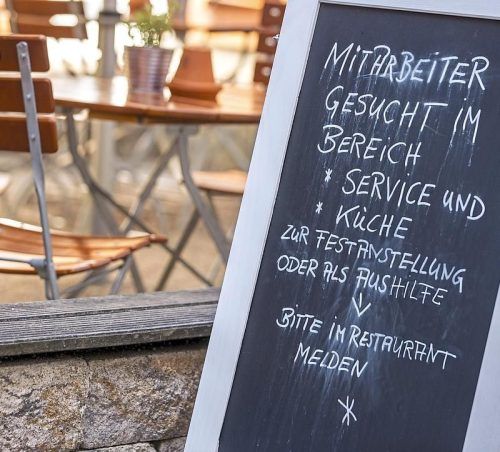 MITARBEITER
GESUCHT IM
BEREICH
* SERVICE UND
* KÜCHE
ZUR FESTANSTELLUNG
ODER ALS AUSHILFE
↓
BITTE IM RESTAURANT
MELDEN
*